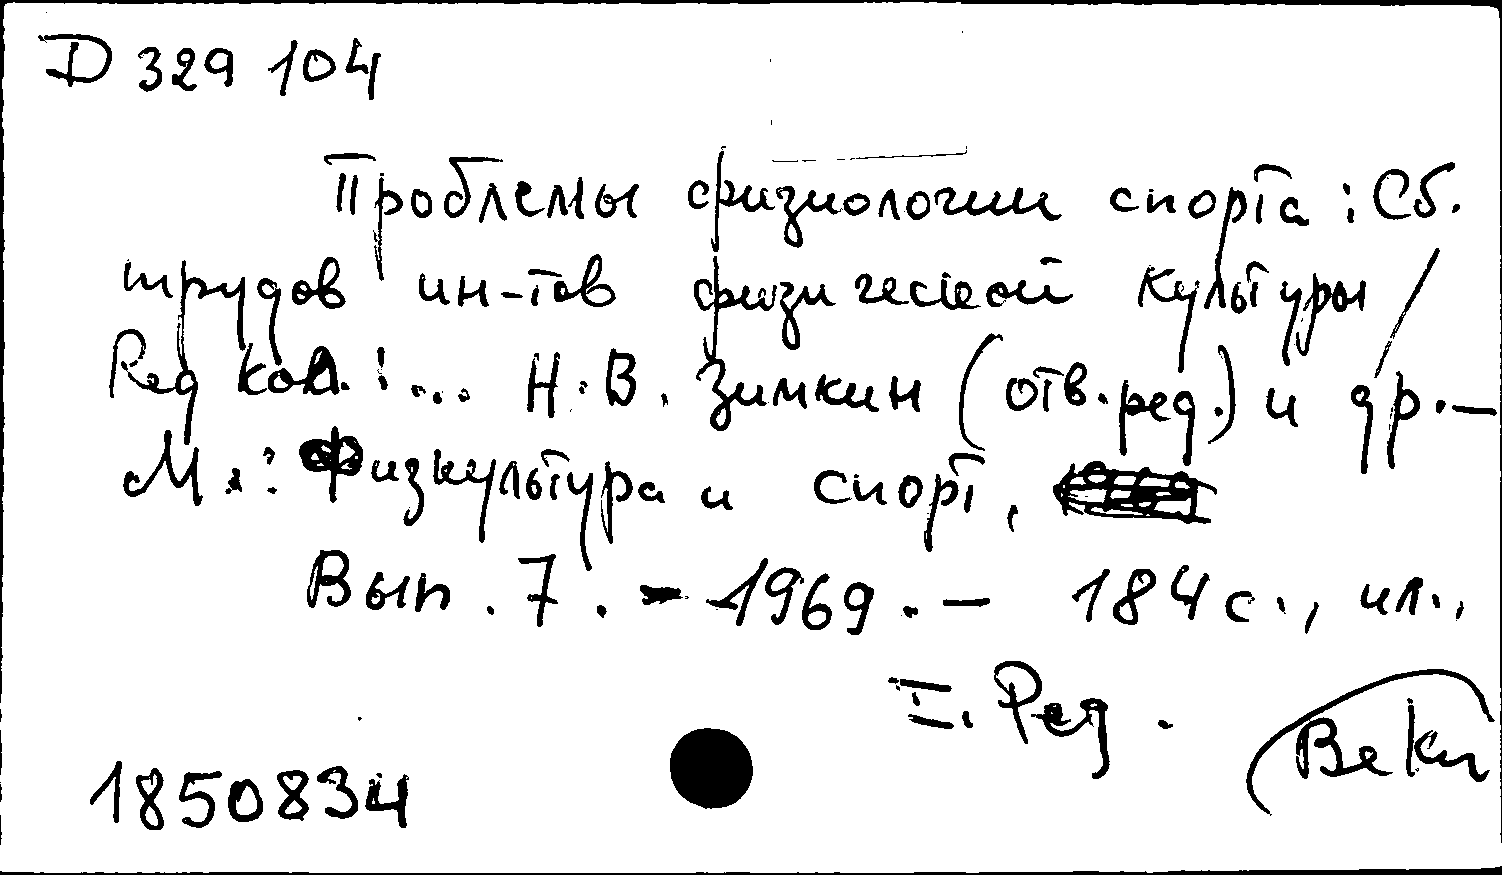 D 329 104
Проблемы физиологии спорта : Сб.
трудов ин-тов физической культуры /
Ред кол. : ... Н. В. Зимкин (отв. ред.) и др. —
М. : Физкультура и спорт,
Вып. 7. — 1969. — 184 с., ил.,
I. Ред.
1850834